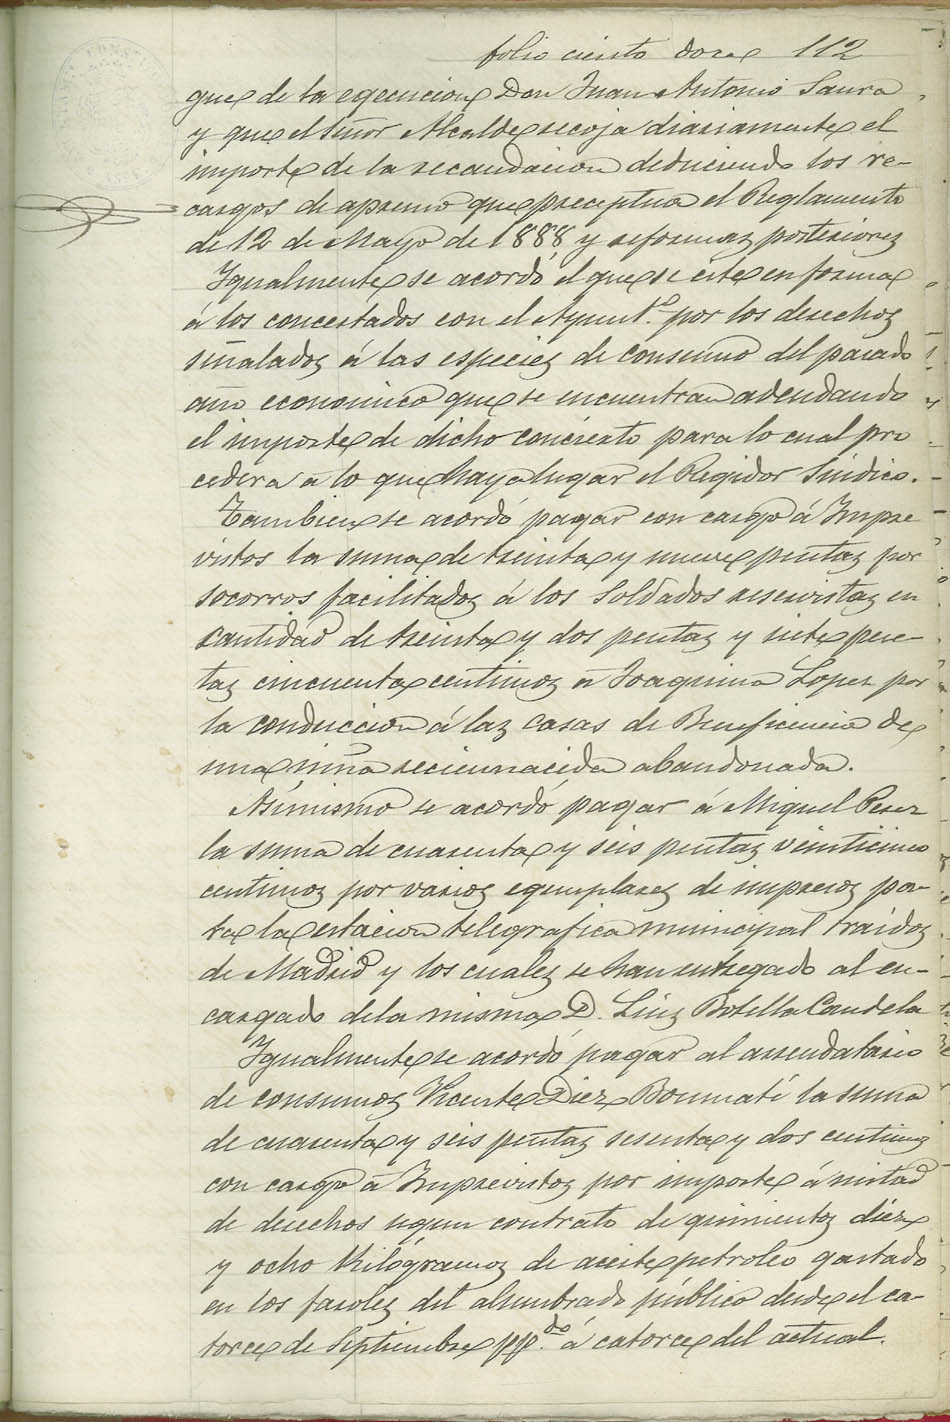 folio ciento doce 112
que de la egecucion Don Juan Antonio Saura
y que el Señor Alcalde recoja diariamente el
importe de la recaudacion deduciendo los re-
cargos de apremio que preceptua el Reglamento
de 12 de Mayo de 1888 y reformas posteriores
Igualmente se acordó el que se cite en forma
á los concertados con el Ayunt.º por los derechos
señalados á las especies de consumo del pasado
año economico que se encuentran adeudando
el importe de dicho concierto para lo cual pro
cedera á lo que haya lugar el Regidor Sindico.
Tambien se acordó pagar con cargo á Impre
vistos la suma de treinta y nueve pesetas por
socorros facilitados á los Soldados reservistas en
cantidad de treinta y dos pesetas y siete pese-
tas cincuenta centimos á Joaquina Lopez por
la conduccion á las casas de Beneficencia de
una niña recien nacida abandonada.
Asimismo se acordó pagar á Miguel Perez
la suma de cuarenta y seis pesetas veinticinco
centimos por varios egemplares de impresos pa-
ra la estacion telegrafica municipal traídos
de Madrid y los cuales se han entregado al en-
cargado de la misma D. Luis Botella Candela
Igualmente se acordó pagar al arrendatario
de consumos Vicente Diez Bonmatí la suma
de cuarenta y seis pesetas sesenta y dos centimos
con cargo á Imprevistos por importe á mitad
de derechos segun contrato de quinientos diez
y ocho Kilógramos de aceite petroleo gastado
en los faroles del alumbrado público desde el ca-
torce de Septiembre pp.do á catorce del actual.